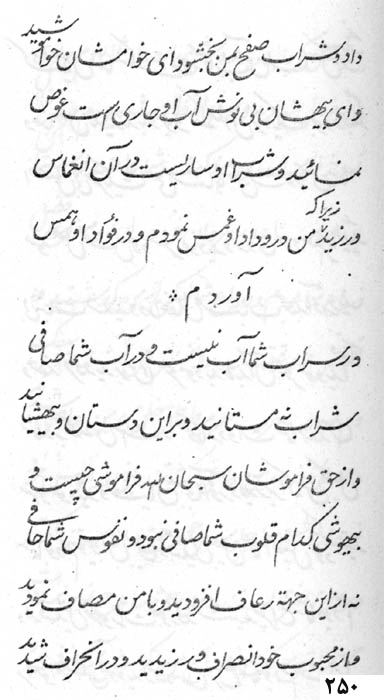 داد و شراب صفح بمن بخشود ای خوامشان خواقید شید
وای بیهشان بی نوش آب او جاری است غوص
نمائید و شراب او ساریست در آن انغماس
ورزید زیرا که من در وداد او غمس نمودم و در فؤاد او همس
آوردم *
در سراب شما آب نیست و در آب شما صافی
شراب نه مستانید و بر این دستان و بیهشانید
و از حق فراموشان سبحان الله فراموشی چیست و
بیهوشی کدام قلوب شما صافی نبود و نفوس شما حافی
نه از این جهة رعاف افزودید و با من مصاف نمودید
و از محبوب خود انصراف ورزیدید و در انحراف شدید
۲۵۰